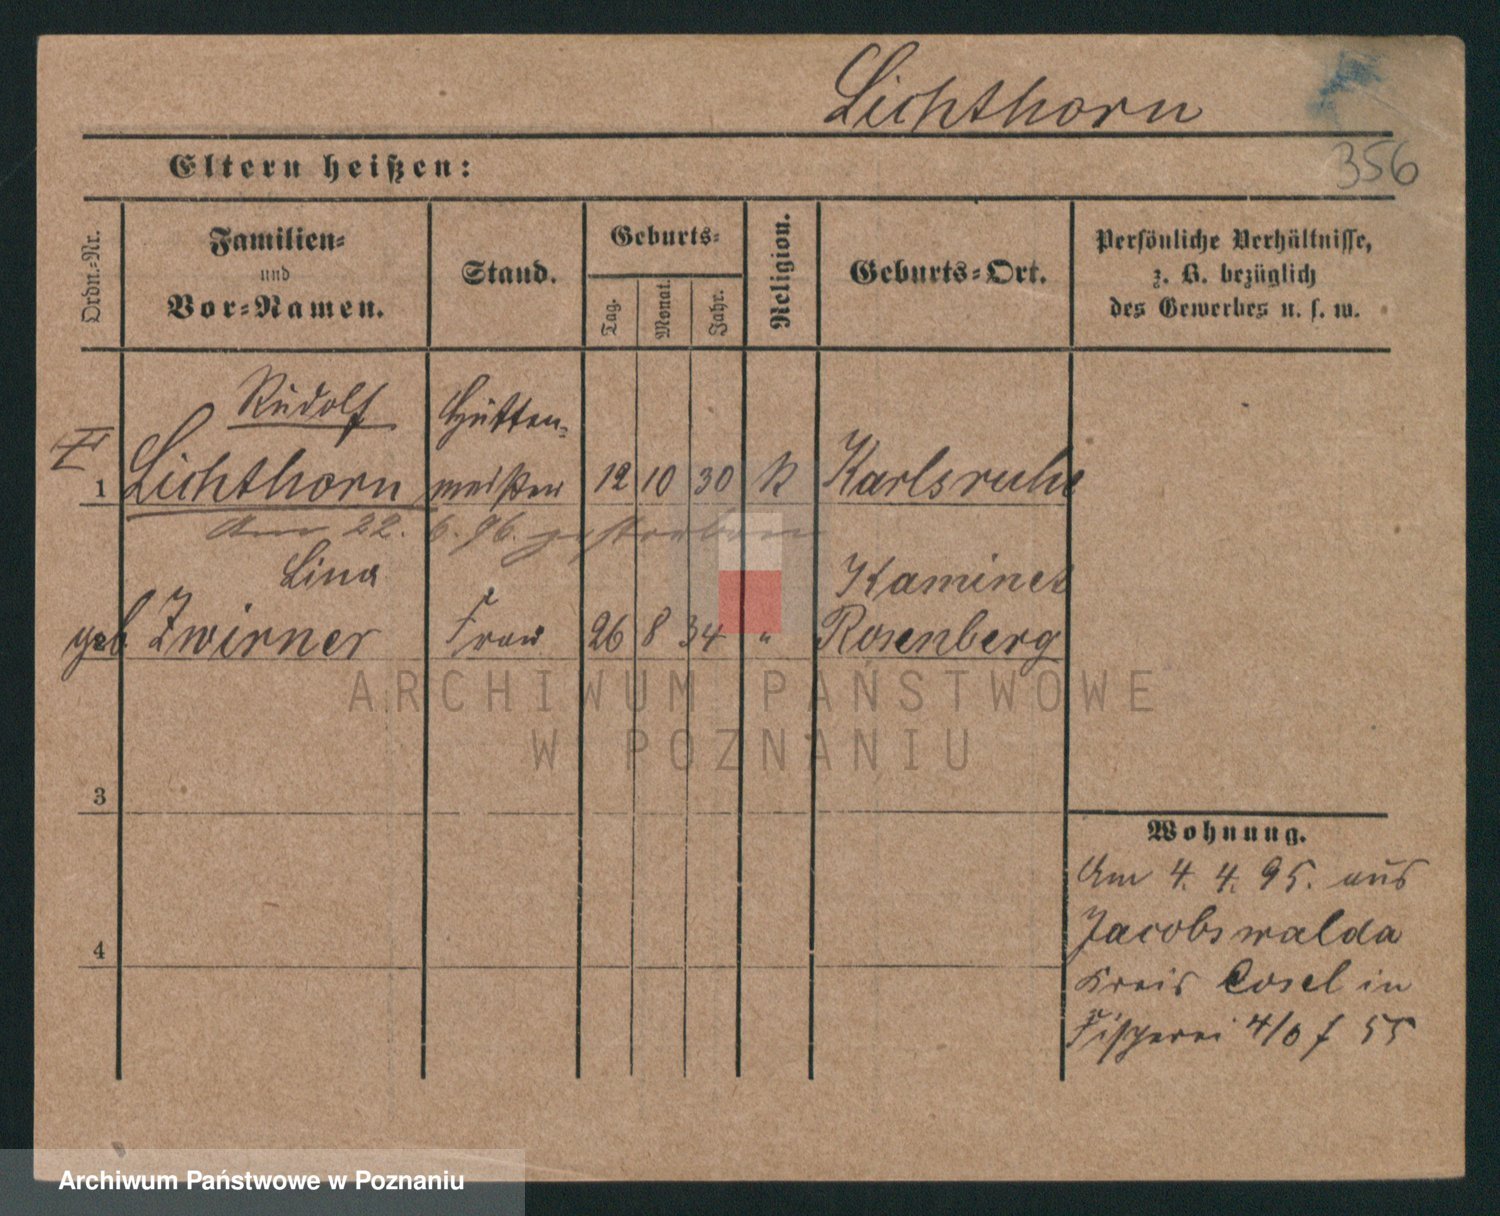 Lichthorn
356
Eltern heißen:
Ordn.-Nr.
Familien-
und
Vor-Namen.
Stand.
Geburts-
Tag.
Monat.
Jahr.
Religion.
Geburts-Ort.
Persönliche Verhältnisse,
z. B. bezüglich
des Gewerbes u. s. w.
Rudolf Hütten-
1 Lichthorn meister 12 10 30 K Karlsruhe
Am 22. 6. 96. gestorben
Lina Kaminetz
geb. Zwirner Frau 26 8 34 " Rosenberg
ARCHIWUM PAŃSTWOWE
W POZNANIU
3
4
Wohnung.
Am 4. 4. 95. aus
Jacobswalda
Kreis Cosel in
Fischerei 4/6 f 55
Archiwum Państwowe w Poznaniu